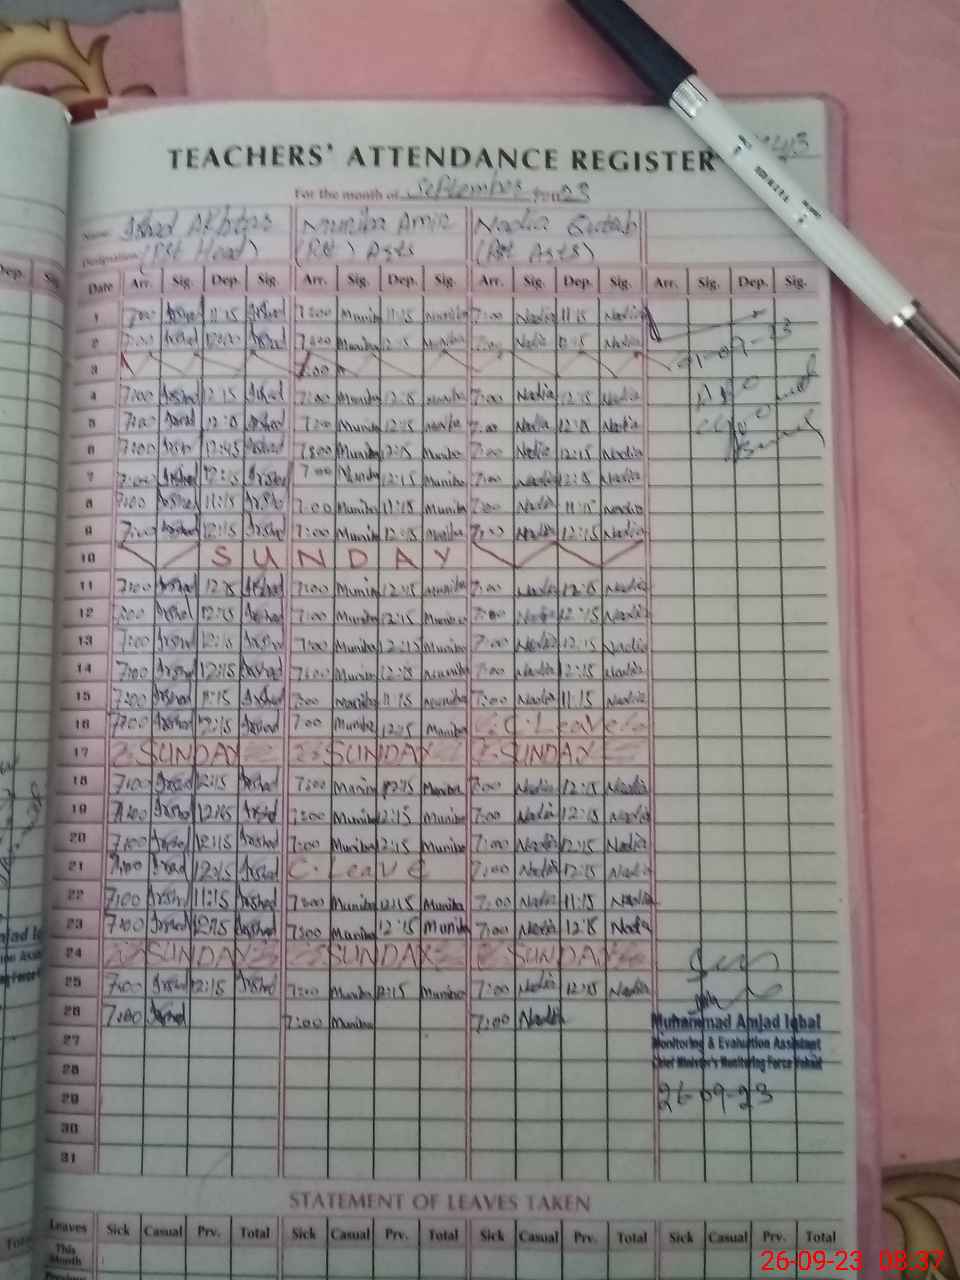 TEACHERS' ATTENDANCE REGISTER
For the month of September 2023
Name
Muniba Amir Nadia
Designation (PST Head) (PST) Asts (PST Asts)
Date Arr. Sig. Dep. Sig. Arr. Sig. Dep. Sig. Arr. Sig. Dep. Sig. Arr. Sig. Dep. Sig.
1 7:00 Arshad 11:15 Arshad 7:00 Muniba 11:15 Muniba 7:00 Nadia 11:15 Nadia
2 7:00 Arshad Arshad 7:00 Muniba 12:15 Muniba 7:00 Nadia 12:15 Nadia
3 7:00
01-09-23
4 7:00 Arshad 12:15 Arshad 7:00 Muniba 12:15 Muniba 7:00 Nadia 12:15 Nadia
5 7:00 Arshad 12:15 Arshad 7:00 Muniba 12:15 Muniba 7:00 Nadia 12:15 Nadia
6 7:00 Arshad 12:45 Arshad 7:00 Muniba 12:15 Muniba 7:00 Nadia 12:15 Nadia
7 7:00 Arshad 12:15 Arshad 7:00 Muniba 12:15 Muniba 7:00 Nadia 12:15 Nadia
8 7:00 Arshad 11:15 Arshad 7:00 Muniba 11:15 Muniba 7:00 Nadia 11:15 Nadia
9 7:00 Arshad 12:15 Arshad 7:00 Muniba 12:15 Muniba 7:00 Nadia 12:15 Nadia
10 SUNDAY
11 7:00 Arshad 12:15 Arshad 7:00 Muniba 12:15 Muniba 7:00 Nadia 12:15 Nadia
12 7:00 Arshad 12:15 Arshad 7:00 Muniba 12:15 Muniba 7:00 Nadia 12:15 Nadia
13 7:00 Arshad 12:15 Arshad 7:00 Muniba 12:15 Muniba 7:00 Nadia 12:15 Nadia
14 7:00 Arshad 12:15 Arshad 7:00 Muniba 12:15 Muniba 7:00 Nadia 12:15 Nadia
15 7:00 Arshad 11:15 Arshad 7:00 Muniba 11:15 Muniba 7:00 Nadia 11:15 Nadia
16 7:00 Arshad 12:15 Arshad 7:00 Muniba 12:15 Muniba C. Leave
17 SUNDAY SUNDAY SUNDAY
18 7:00 Arshad 12:15 Arshad 7:00 Muniba 12:15 Muniba 7:00 Nadia 12:15 Nadia
19 7:00 Arshad 12:15 Arshad 7:00 Muniba 12:15 Muniba 7:00 Nadia 12:15 Nadia
20 7:00 Arshad 12:15 Arshad 7:00 Muniba 12:15 Muniba 7:00 Nadia 12:15 Nadia
21 7:00 Arshad 12:15 Arshad C. Leave 7:00 Nadia 12:15 Nadia
22 7:00 Arshad 11:15 Arshad 7:00 Muniba 11:15 Muniba 7:00 Nadia 11:15 Nadia
23 7:00 Arshad 12:15 Arshad 7:00 Muniba 12:15 Muniba 7:00 Nadia 12:15 Nadia
24 SUNDAY SUNDAY SUNDAY
25 7:00 Arshad 12:15 Arshad 7:00 Muniba 12:15 Muniba 7:00 Nadia 12:15 Nadia
26 7:00 Arshad 7:00 Muniba 7:00 Nadia
Muhammad Amjad Iqbal
27
Monitoring & Evaluation Assistant
28
Chief Minister's Monitoring Force
29
26-09-23
30
31
STATEMENT OF LEAVES TAKEN
Leaves Sick Casual Prv. Total Sick Casual Prv. Total Sick Casual Prv. Total Sick Casual Prv. Total
This Month
26-09-23 08:37